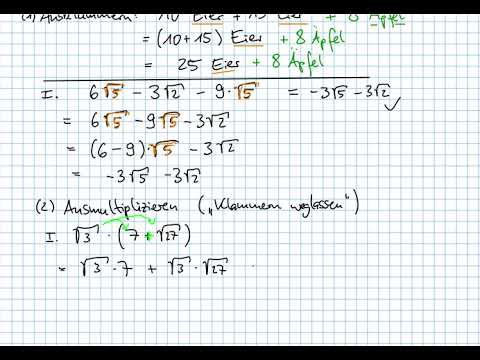 (1) Ausklammern: 10 Eier + 15 Eier + 8 Äpfel
= (10+15) Eier + 8 Äpfel
= 25 Eier + 8 Äpfel
I. 6√5 − 3√2 − 9·√5 = −3√5 − 3√2 ✓
= 6√5 − 9√5 − 3√2
= (6−9)·√5 − 3√2
= −3√5 − 3√2
(2) Ausmultiplizieren („Klammern weglassen")
I. √3 · (7 + √27)
= √3 · 7 + √3 · √27